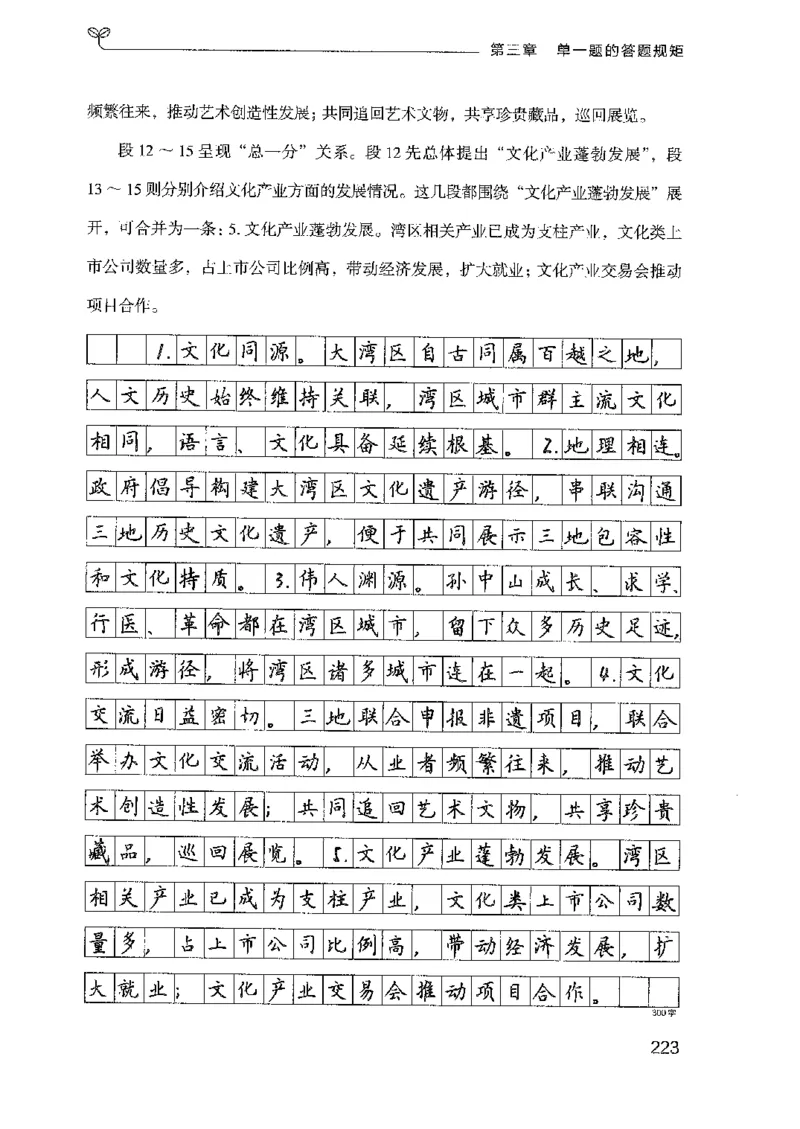 第三章 单一题的答题规矩
频繁往来，推动艺术创造性发展；共同追回艺术文物，共享珍贵藏品，巡回展览。
段 12 ～ 15 呈现“总一分”关系。段 12 先总体提出“文化产业蓬勃发展”，段
13 ～ 15 则分别介绍文化产业方面的发展情况。这几段都围绕“文化产业蓬勃发展”展
开，可合并为一条：5. 文化产业蓬勃发展。湾区相关产业已成为支柱产业，文化类上
市公司数量多，占上市公司比例高，带动经济发展，扩大就业；文化产业交易会推动
项目合作。
1.文化同源。大湾区自古同属百越之地，
人文历史始终维持关联，湾区城市群主流文化
相同，语言、文化具备延续根基。2.地理相连。
政府倡导构建大湾区文化遗产游径，串联沟通
三地历史文化遗产，便于共同展示三地包容性
和文化特质。3.伟人渊源。孙中山成长、求学、
行医、革命都在湾区城市，留下众多历史足迹，
形成游径，将湾区诸多城市连在一起。4.文化
交流日益密切。三地联合申报非遗项目，联合
举办文化交流活动，从业者频繁往来，推动艺
术创造性发展；共同追回艺术文物，共享珍贵
藏品，巡回展览。5.文化产业蓬勃发展。湾区
相关产业已成为支柱产业，文化类上市公司数
量多，占上市公司比例高，带动经济发展，扩
大就业；文化产业交易会推动项目合作。
300字
223